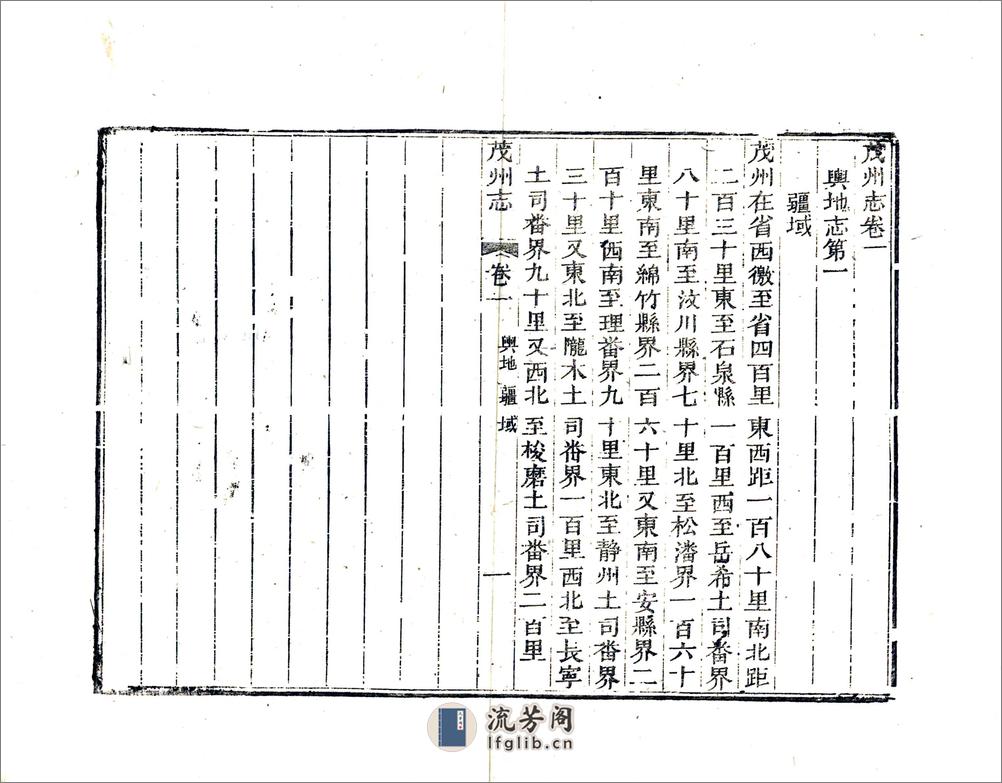 茂州志卷一
輿地志第一
疆域
茂州在省西徼至省四百里東西距一百八十里南北距
二百三十里東至石泉縣一百里西至岳希土司番界
八十里南至汶川縣界七十里北至松潘界一百六十
里東南至綿竹縣界二百六十里又東南至安縣界二
百十里西南至理番界九十里東北至静州土司番界
三十里又東北至隴木土司番界一百里西北至長寧
土司番界九十里又西北至梭磨土司番界二百里
茂州志 卷一 輿地 疆域 一
流芳阁
lfglib.cn